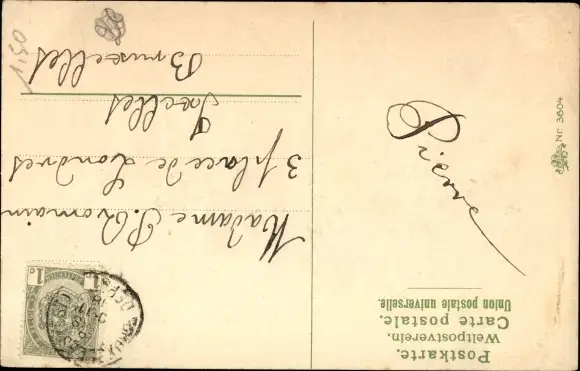 Postkarte.
Weltpostverein.
Carte postale.
Union postale universelle.
Nr. 3604
Pierre
Madame P. Romain
3 place de Londres
Ixelles
Bruxelles
1,50
1c 1c